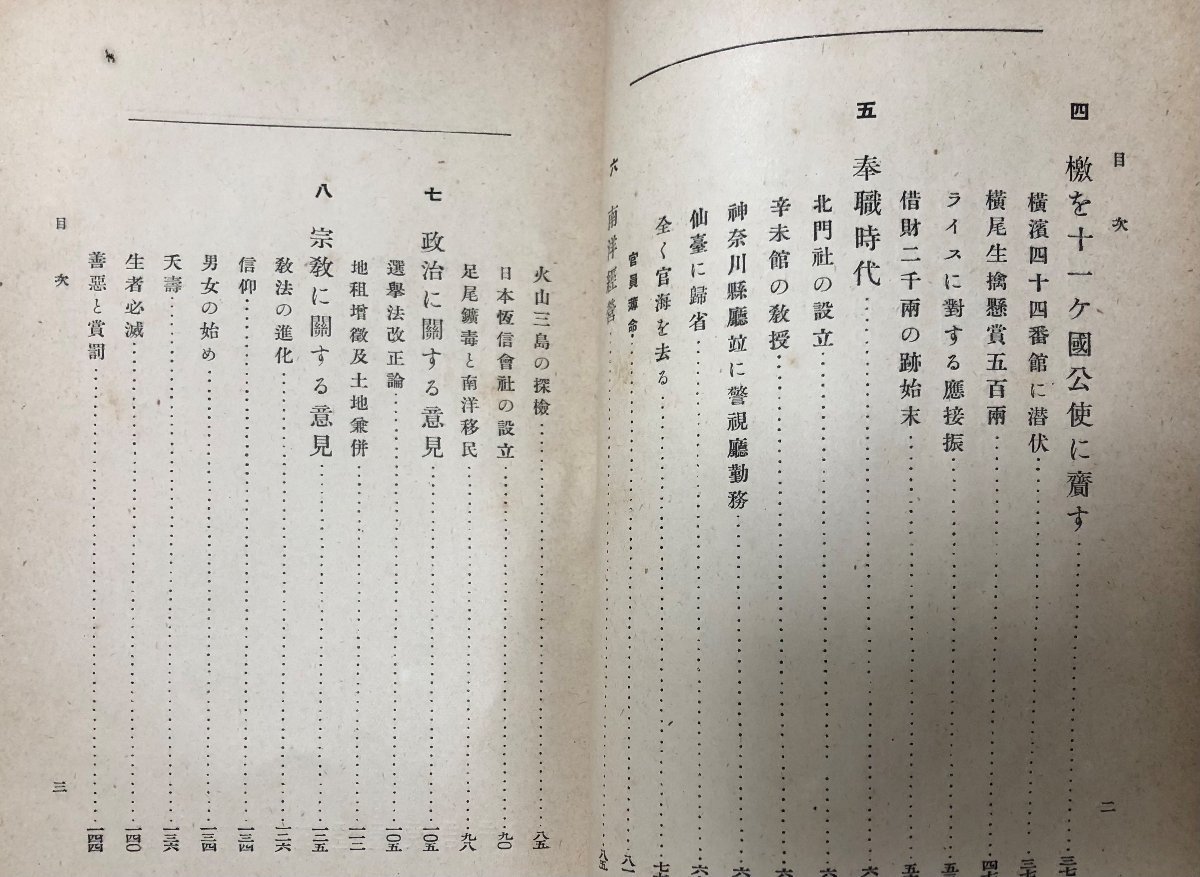 目次
四 檄を十一ケ國公使に齎す……三七
橫濱四十四番館に潜伏……三七
橫尾生擒懸賞五百兩……四七
ライスに對する應接振……五
借財二千兩の跡始末……五
五 奉職時代……六
北門社の設立……六
辛未館の敎授……六
神奈川縣廳竝に警視廳勤務……六
仙臺に歸省……六
全く官海を去る……七
官員薄命……八一
六 南洋經營……八五
二
火山三島の探檢……八五
日本恆信會社の設立……九〇
足尾鑛毒と南洋移民……九八
七 政治に關する意見……一〇五
選擧法改正論……一〇五
地租增徵及土地兼併……一一二
八 宗敎に關する意見……一二五
敎法の進化……一二六
信仰……一三四
男女の始め……一三四
夭壽……一三六
生者必滅……一四〇
善惡と賞罰……一四四
目次
三